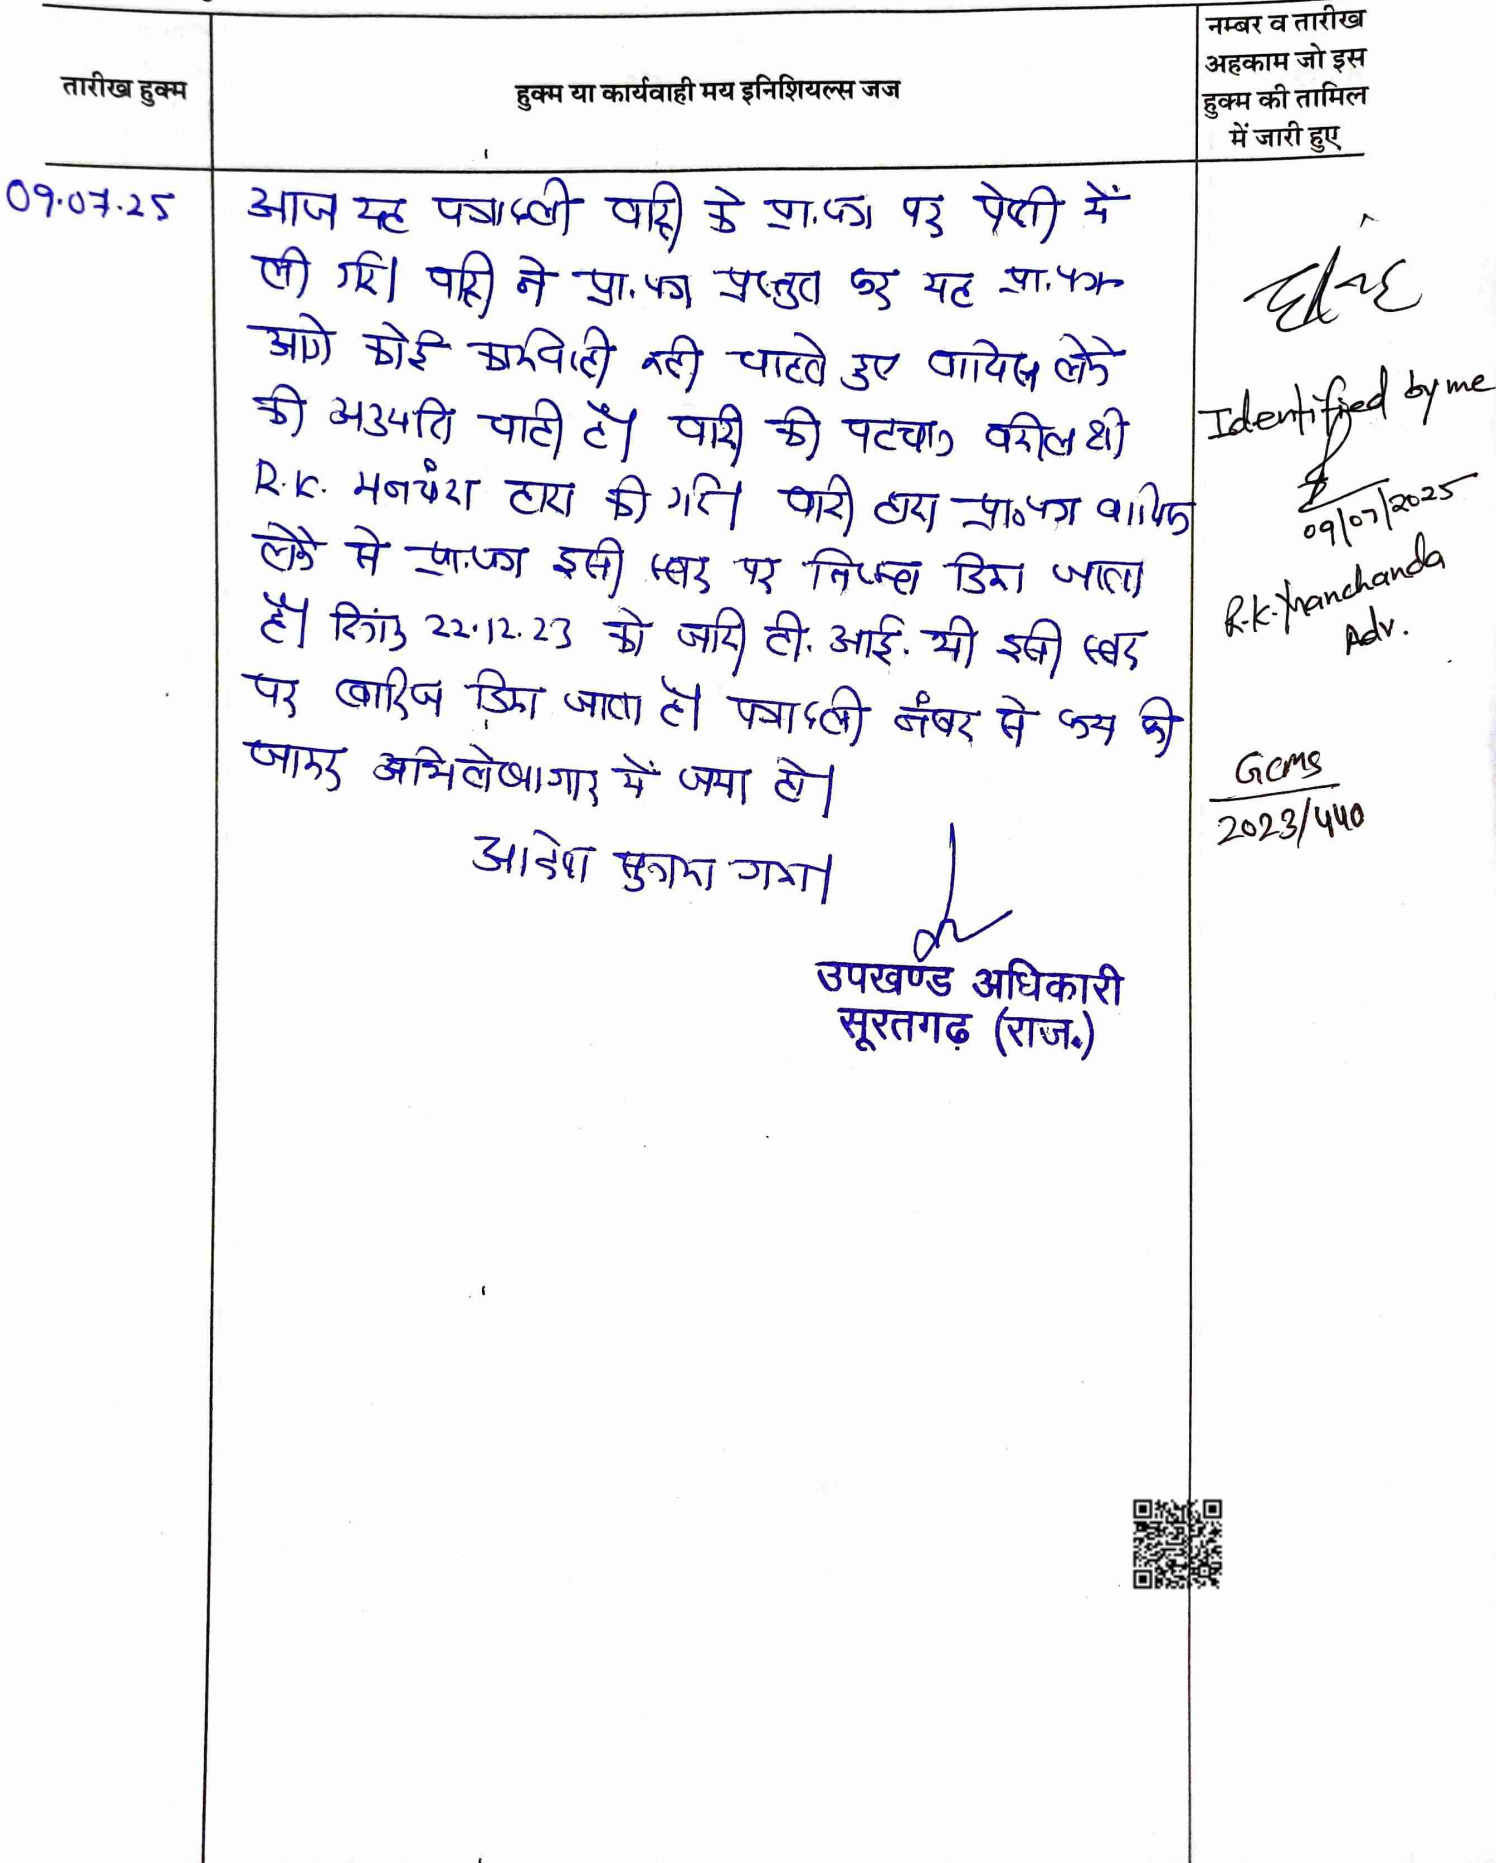 तारीख हुक्म
हुक्म या कार्यवाही मय इनिशियल्स जज
नम्बर व तारीख
अहकाम जो इस
हुक्म की तामिल
में जारी हुए
09.07.25
आज यह पत्रावली वादी के प्रा.पत्र पर पेशी में
ली गई। वादी ने प्रा.पत्र प्रस्तुत कर यह प्रा.पत्र
आगे कोई कार्यवाही नहीं चाहते हुए वापिस लेने
की अनुमति चाही है। वादी की पहचान वकील श्री
R.K. मनचंदा द्वारा की गई। वादी द्वारा प्रा.पत्र वापिस
लेने से प्रा.पत्र इसी स्तर पर किया जाता
है। दिनांक 22.12.23 को जारी टी.आई. भी इसी स्तर
पर खारिज किया जाता है। पत्रावली नंबर से कम की
जाकर अभिलेखागार में जमा हो।
आदेश सुनाया गया।
उपखण्ड अधिकारी
सूरतगढ़ (राज.)
Identified by me
09/07/2025
R.K. Manchanda
Adv.
GCMS
2023/440